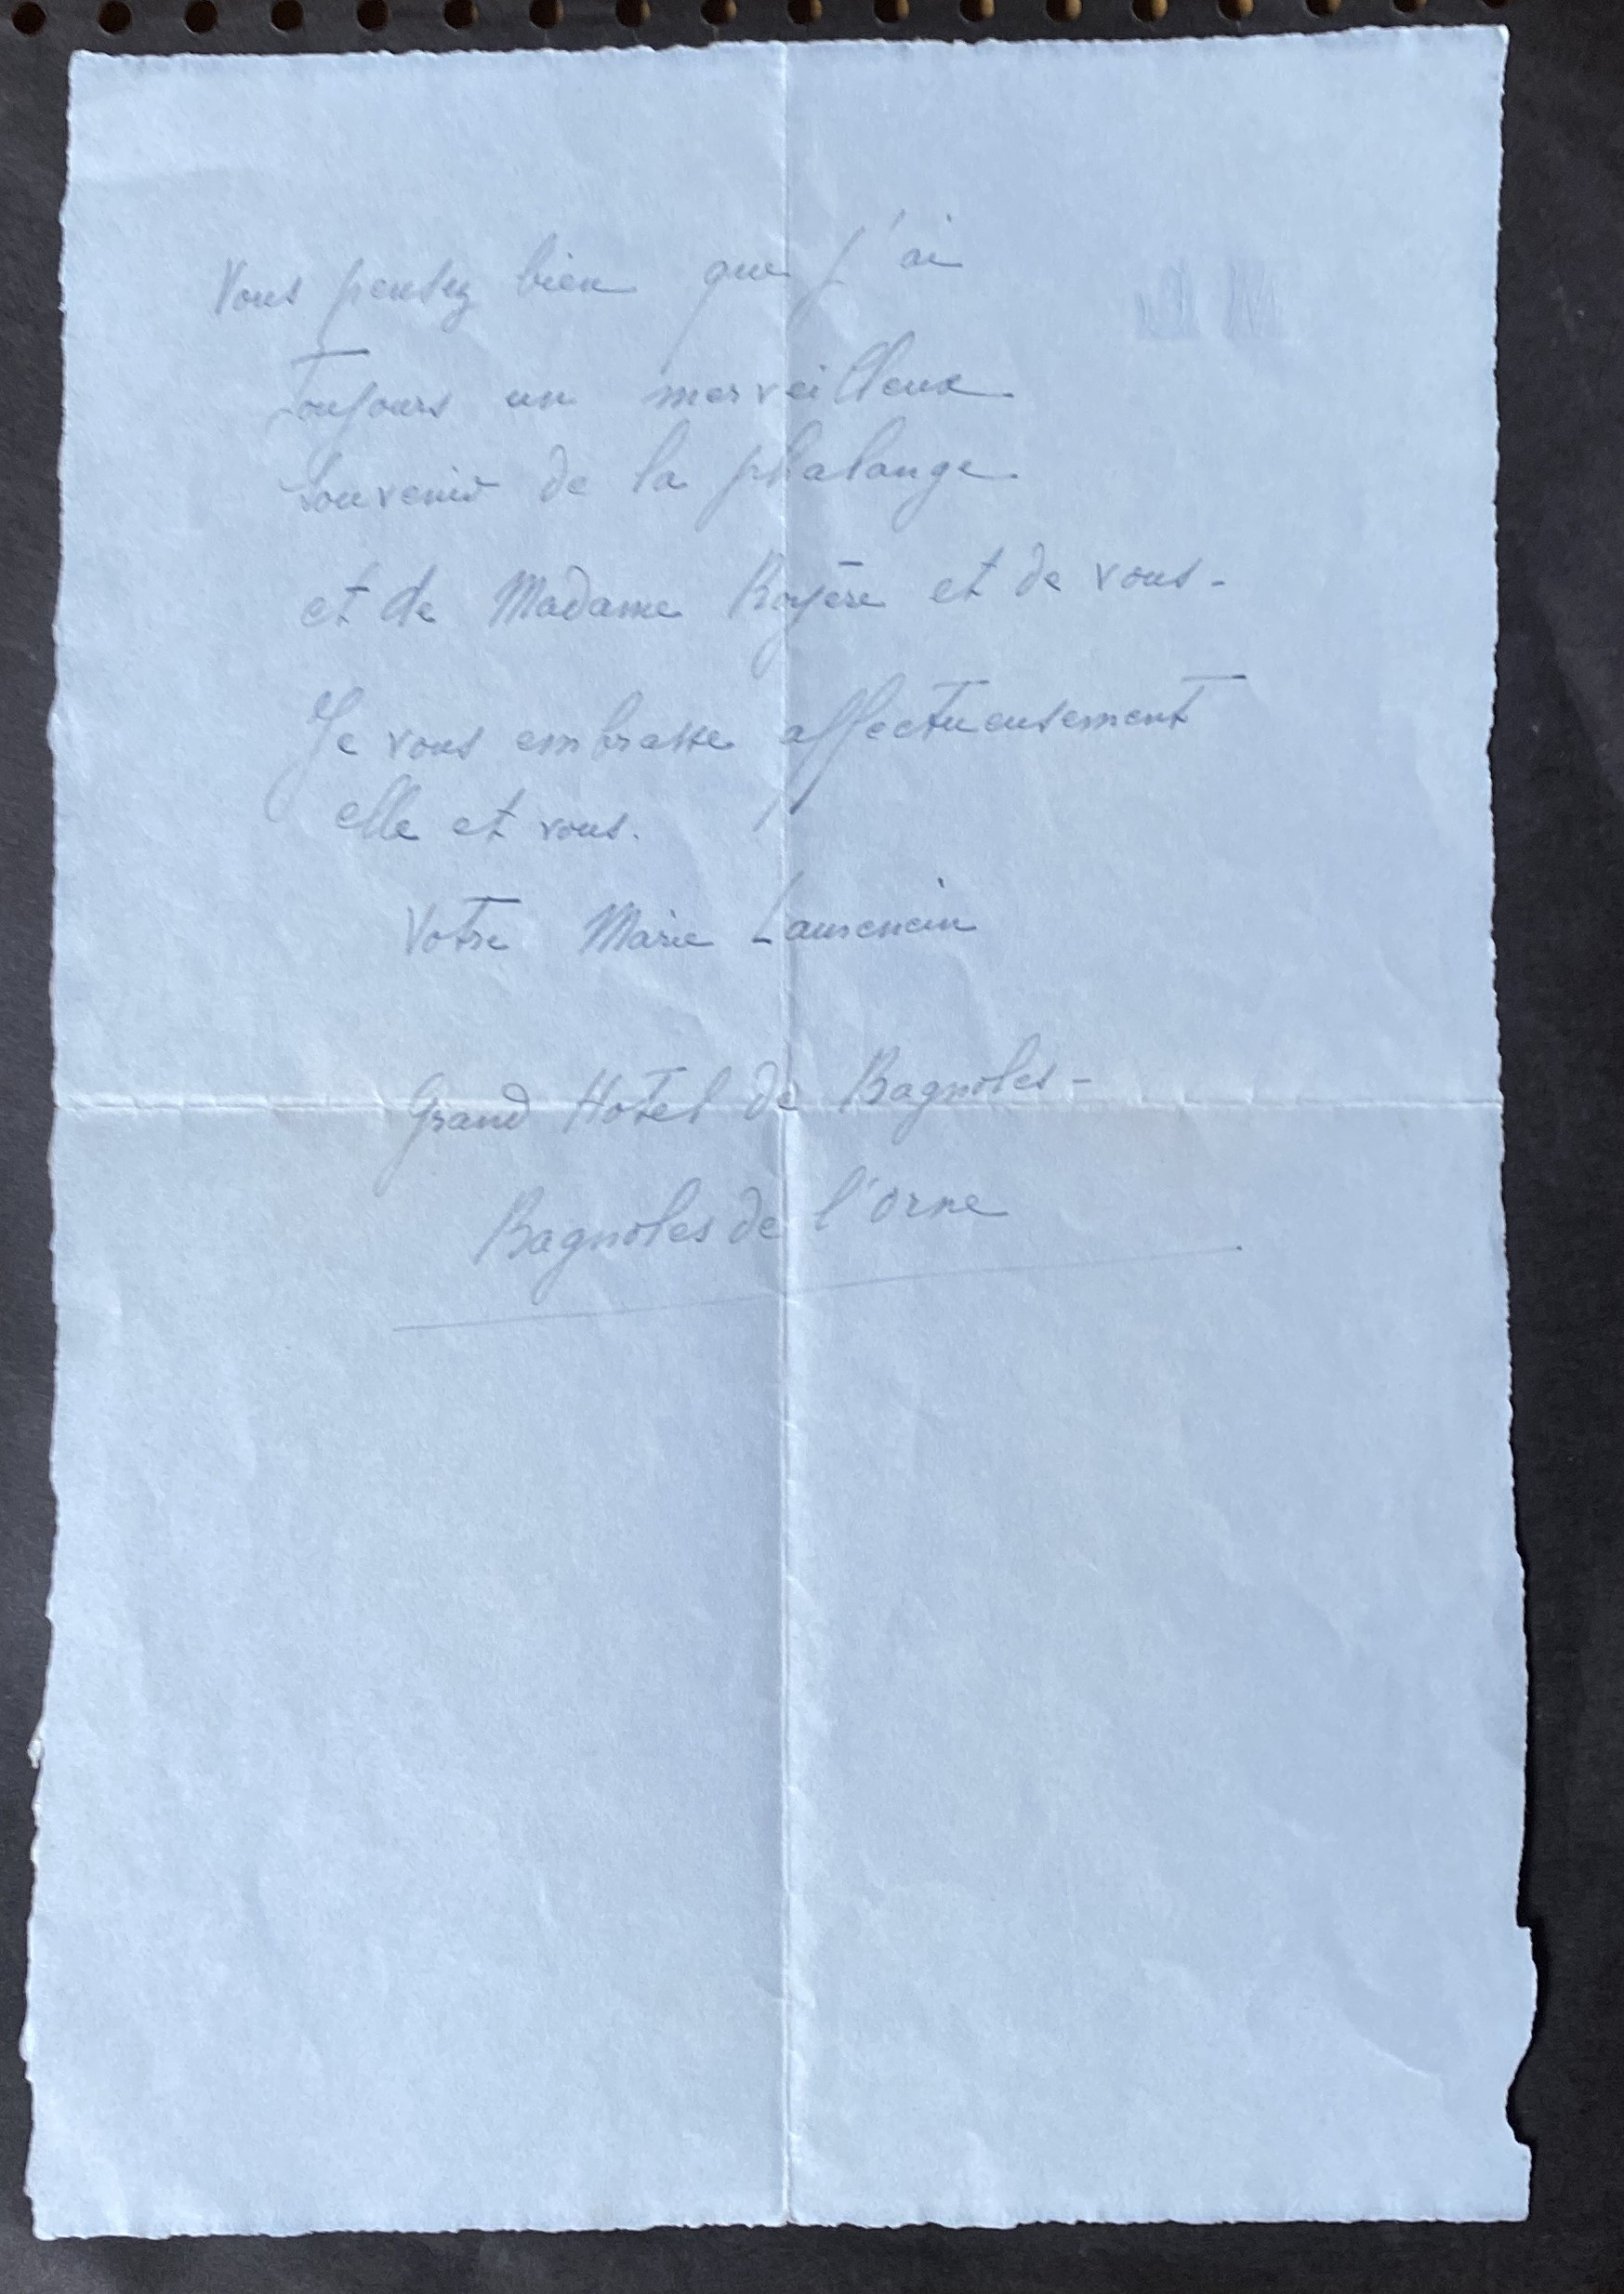 Vous pensez bien que j'ai
Toujours un merveilleux
souvenir de la phalange
et de Madame Royère et de vous -
Je vous embrasse affectueusement
elle et vous.
Votre Marie Laurencin
Grand Hotel de Bagnoles -
Bagnoles de l'Orne